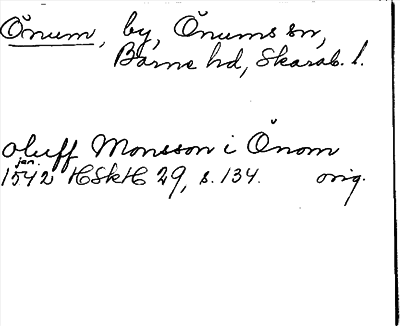 Önum, by, Önums sn,
Barne hd, Skarab. l.
oluff Monsson i Önom
jan.
1542 HSkH 29, s. 134. orig.